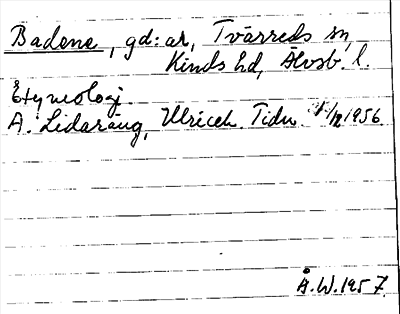 Badene, gd:ar, Tvärreds sn,
Kinds hd, Älvsb. l.
Etymologi.
A. Lidaräng, Ulriceh. Tidn. /12 1956.
Å.W. 1957.